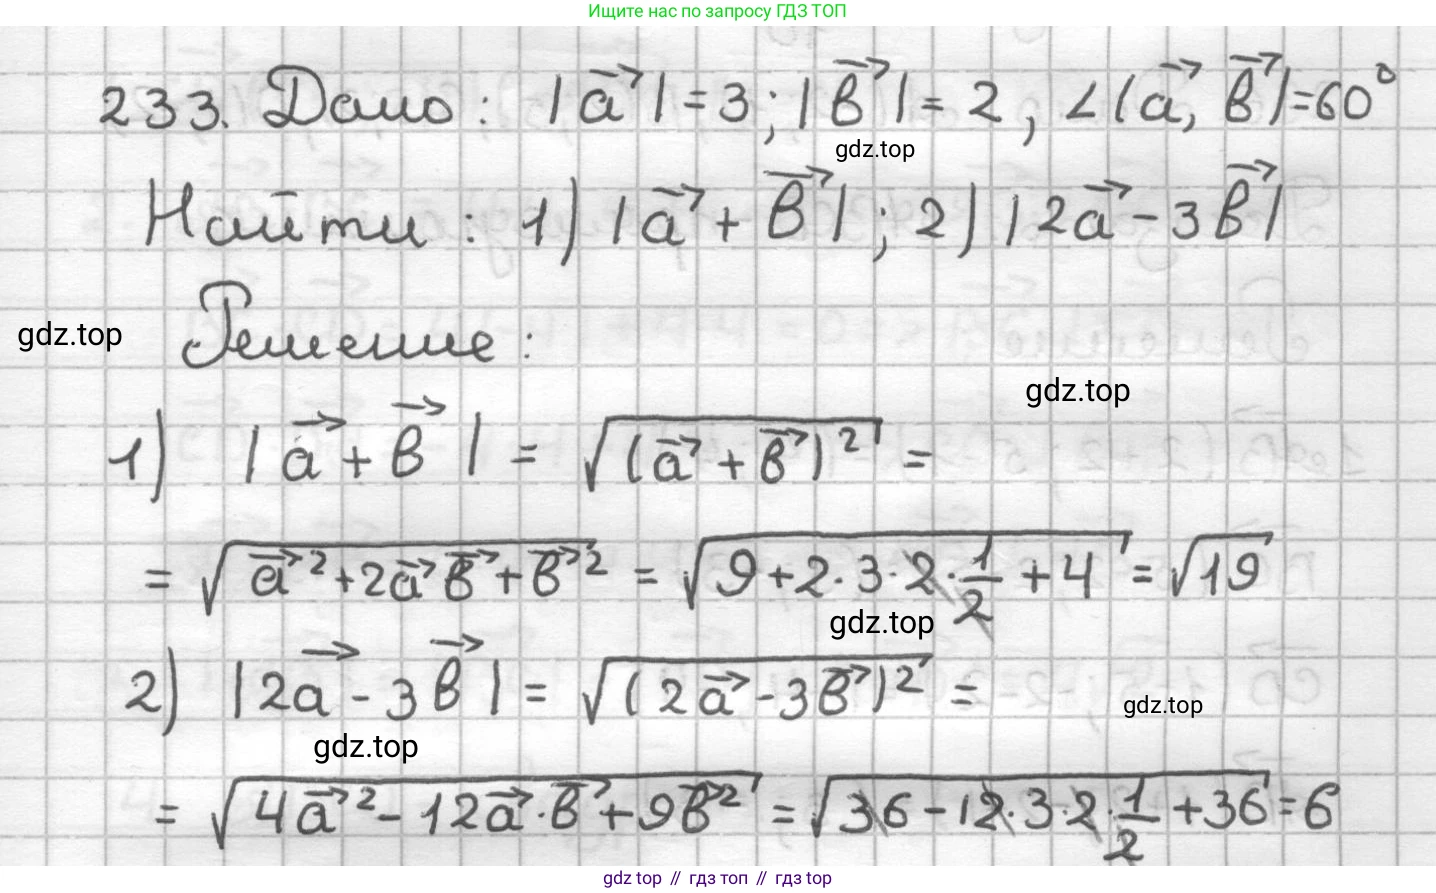 Ищите нас по запросу ГДЗ ТОП
233. Дано: |a⃗| = 3; |b⃗| = 2, ∠(a⃗, b⃗) = 60°
gdz.top
Найти: 1) |a⃗ + b⃗|; 2) |2a⃗ - 3b⃗|
Решение:
gdz.top
gdz.top
1) |a⃗ + b⃗| = √((a⃗ + b⃗)²) =
= √(a⃗² + 2a⃗ b⃗ + b⃗²) = √(9 + 2·3·2·1/2 + 4) = √19
gdz.top
2) |2a⃗ - 3b⃗| = √((2a⃗ - 3b⃗)²) =
gdz.top
gdz.top
= √(4a⃗² - 12a⃗·b⃗ + 9b⃗²) = √(36 - 12·3·2·1/2 + 36) = 6
gdz top // гдз топ // gdz top